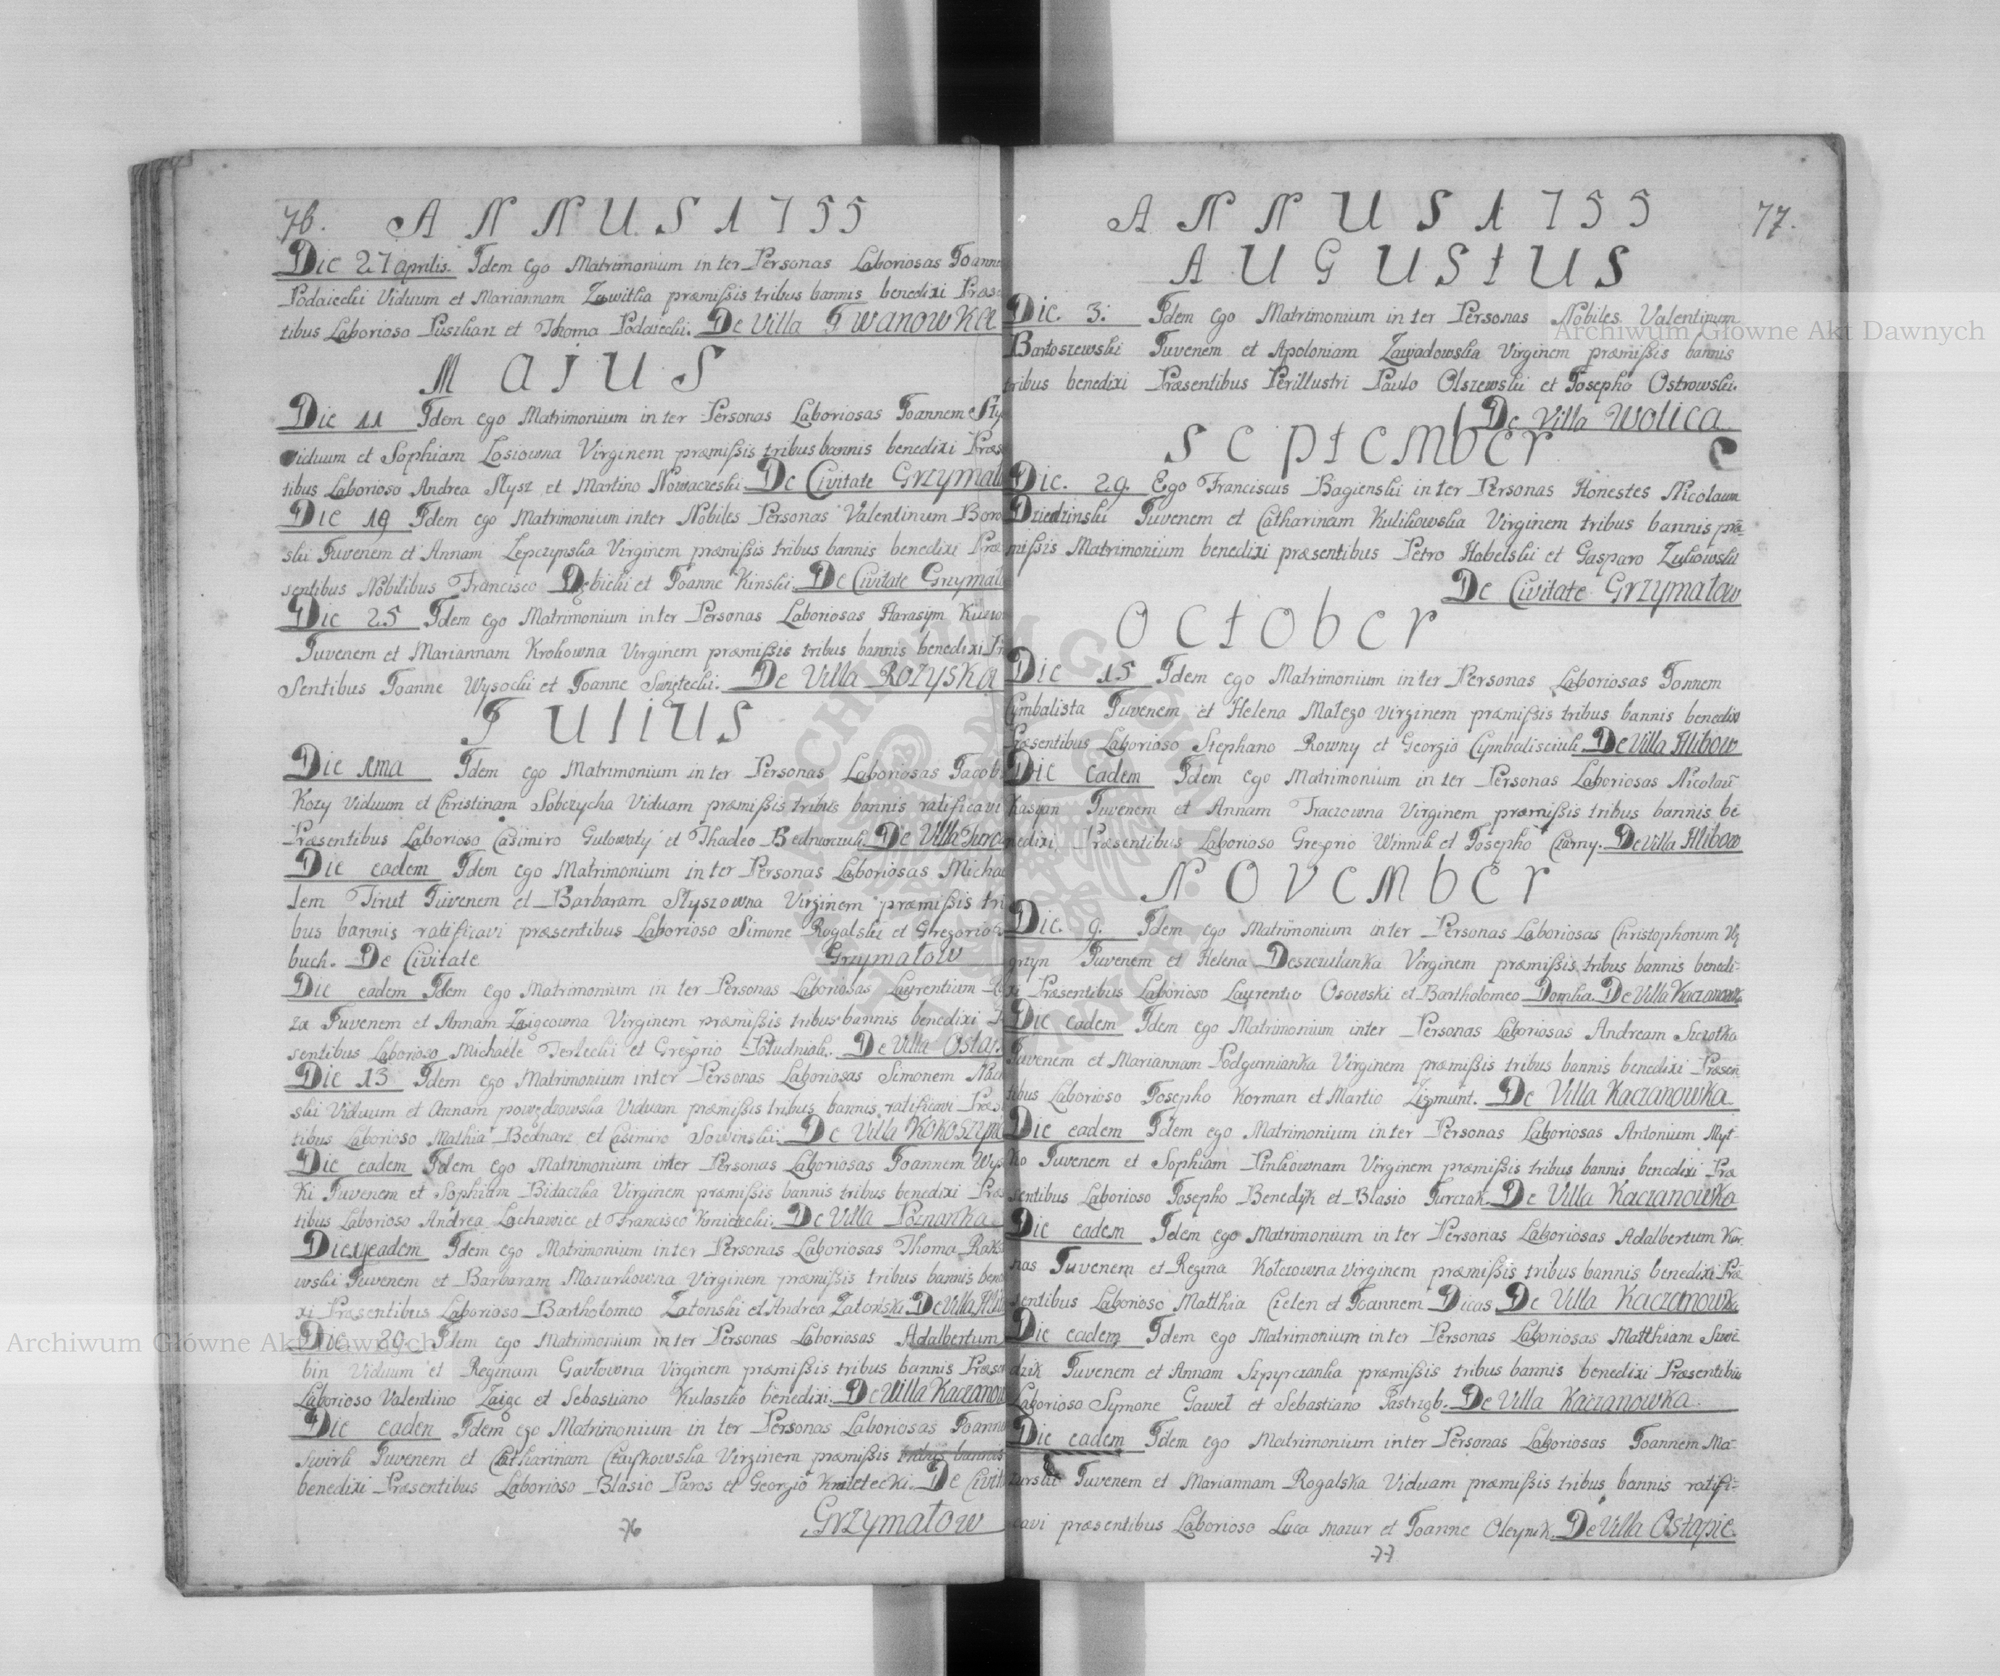 76. ANNUS 1755
Die 27 aprilis. Idem Ego Matrimonium inter Personas Laboriosas Joanne
Podaiecki Viduum et Mariannam Zawitka præmissis tribus bannis benedixi Præse
tibus Laborioso Puszkarz et Thoma Podaiecki. De Villa Iwanowka
MAIUS
Die 11 Idem ego Matrimonium inter Personas Laboriosas Joannem Sty
viduum et Sophiam Losiowna Virginem præmissis tribus bannis benedixi Præs
tibus Laborioso Andrea Slysz et Martino Nowaczeski. De Civitate Grzymal
Die 19 Idem ego Matrimonium inter Nobiles Personas Valentinum Boro
ski Juvenem et Annam Lepczynska Virginem præmissis tribus bannis benedixi Præ
sentibus Nobilibus Francisco Dębicki et Joanne Kinski. De Civitate Grzymal
Die 25 Idem ego Matrimonium inter Personas Laboriosas Harasym
Juvenem et Mariannam Krokowna Virginem præmissis tribus bannis benedixi Pr
Sentibus Joanne Wysocki et Joanne Swiętecki. De Villa Rożyska
JULIUS
Die 1ma Idem ego Matrimonium inter Personas Laboriosas Jacob
Kozy Viduum et Christinam Sobczycha Viduam præmissis tribus bannis ratificavi
Præsentibus Laborioso Casimiro Gulowaty et Thadeo Bednarczuk. De Villa
Die eadem Idem ego Matrimonium inter Personas Laboriosas Micha
lem Tirut Juvenem et Barbaram Slyszowna Virginem præmissis tri
bus bannis ratificavi præsentibus Laborioso Simone Rogalski et Gregorio
buch. De Civitate Grzymałow
Die eadem Idem ego Matrimonium inter Personas Laboriosas Laurentium
za Juvenem et Annam Zaigcowna Virginem præmissis tribus bannis benedixi
sentibus Laborioso Michaele Terlecki et Gregorio Południak. De Villa Ostap
Die 13 Idem ego Matrimonium inter Personas Laboriosas Simonem
ski Viduum et Annam powędzowska Viduam præmissis tribus bannis ratificavi Præs
tibus Laborioso Mathia Bednarz et Casimiro Sowinski. De Villa Kokoszync
Die eadem Idem ego Matrimonium inter Personas Laboriosas Joannem Wys
ki Juvenem et Sophiam Bidaczka Virginem præmissis bannis tribus benedixi Præ
tibus Laborioso Andrea Lachawiec et Francisco Kmiecicki. De Villa Poznanka
Die eadem Idem ego Matrimonium inter Personas Laboriosas Thoma Rak
wski Juvenem et Barbaram Mazurkowna Virginem præmissis tribus bannis bene
xi Præsentibus Laborioso Bartholomeo Zatonski et Andrea Zatoński. De Villa Hlib
Die 20. Idem ego Matrimonium inter Personas Laboriosas Adalbertum
bin Viduum et Reginam Gawłowna Virginem præmissis tribus bannis Præse
Laborioso Valentino Zaigc et Sebastiano Kulaszko benedixi. De Villa Kaczanow
Die eaden Idem ego Matrimonium inter Personas Laboriosas Joanne
Swirk Juvenem et Catharinam Czaykowska Virginem præmissis tribus bannis
benedixi Præsentibus Laborioso Blasio Paros et Georgio Kmietecki. De Civit
Grzymałow
76
ANNUS 1755 77.
AUGUSTUS
Die. 3. Idem Ego Matrimonium inter Personas Nobiles Valentinum
Bartoszewski Juvenem et Apoloniam Zawadowska Virginem præmissis bannis
tribus benedixi Præsentibus Perillustri Paulo Olszewski et Josepho Ostrowski.
De Villa Wolica
SEPTEMBER
Die. 29. Ego Franciscus Bagienski inter Personas Honestes Nicolaum
Dziedzinski Juvenem et Catharinam Kulikowska Virginem tribus bannis præ
missis Matrimonium benedixi præsentibus Petro Habelski et Gasparo Zukowski
De Civitate Grzymałow
OCTOBER
Die 15 Idem ego Matrimonium inter Personas Laboriosas Jonnem
Cymbalista Juvenem et Helena Małego Virginem præmissis tribus bannis benedixi
Præsentibus Laborioso Stephano Rowny et Georgio Cymbalisciuk. De Villa Hlibow
Die eadem Idem ego Matrimonium inter Personas Laboriosas Nicolaū
Juvenem et Annam Traczowna Virginem præmissis tribus bannis be
nedixi Præsentibus Laborioso Gregorio Winnik et Josepho Czarny. De Villa Hlibow
NOVEMBER
Die. 9. Idem ego Matrimonium inter Personas Laboriosas Christophorum Wę
grzyn Juvenem et Helena Deszczulanka Virginem præmissis tribus bannis benedi-
xi Præsentibus Laborioso Laurentio Osowski et Bartholomeo Domka. De Villa Kaczanowk
Die eadem Idem ego Matrimonium inter Personas Laboriosas Andream Szczotka
Juvenem et Mariannam Podgurnianka Virginem præmissis tribus bannis benedixi Præsen
tibus Laborioso Josepho Korman et Martio Zigmunt. De Villa Kaczanowka
Die eadem Idem ego Matrimonium inter Personas Laboriosas Antonium Myt-
ko Juvenem et Sophiam Pinkownam Virginem præmissis tribus bannis benedixi Præ
sentibus Laborioso Josepho Benedyk et Blasio Turczak. De Villa Kaczanowka
Die eadem Idem ego Matrimonium inter Personas Laboriosas Adalbertum Kor
nas Juvenem et Regina Kołczowna Virginem præmissis tribus bannis benedixi Præ
sentibus Laborioso Matthia Cielen et Joannem Dicas. De Villa Kaczanowk
Die eadem Idem ego Matrimonium inter Personas Laboriosas Matthiam Swi
dzik Juvenem et Annam Szpyrczanka præmissis tribus bannis benedixi Præsentibus
Laborioso Symone Gaweł et Sebastiano Pastrzgb. De Villa Kaczanowka
Die eadem Idem ego Matrimonium inter Personas Laboriosas Joannem Ma-
zurski Juvenem et Mariannam Rogalska Viduam præmissis tribus bannis ratifi-
cavi præsentibus Laborioso Luca Mazur et Joanne Oleynik. De Villa Ostapie.
77
Archiwum Główne Akt Dawnych
Archiwum Główne Akt Dawnych